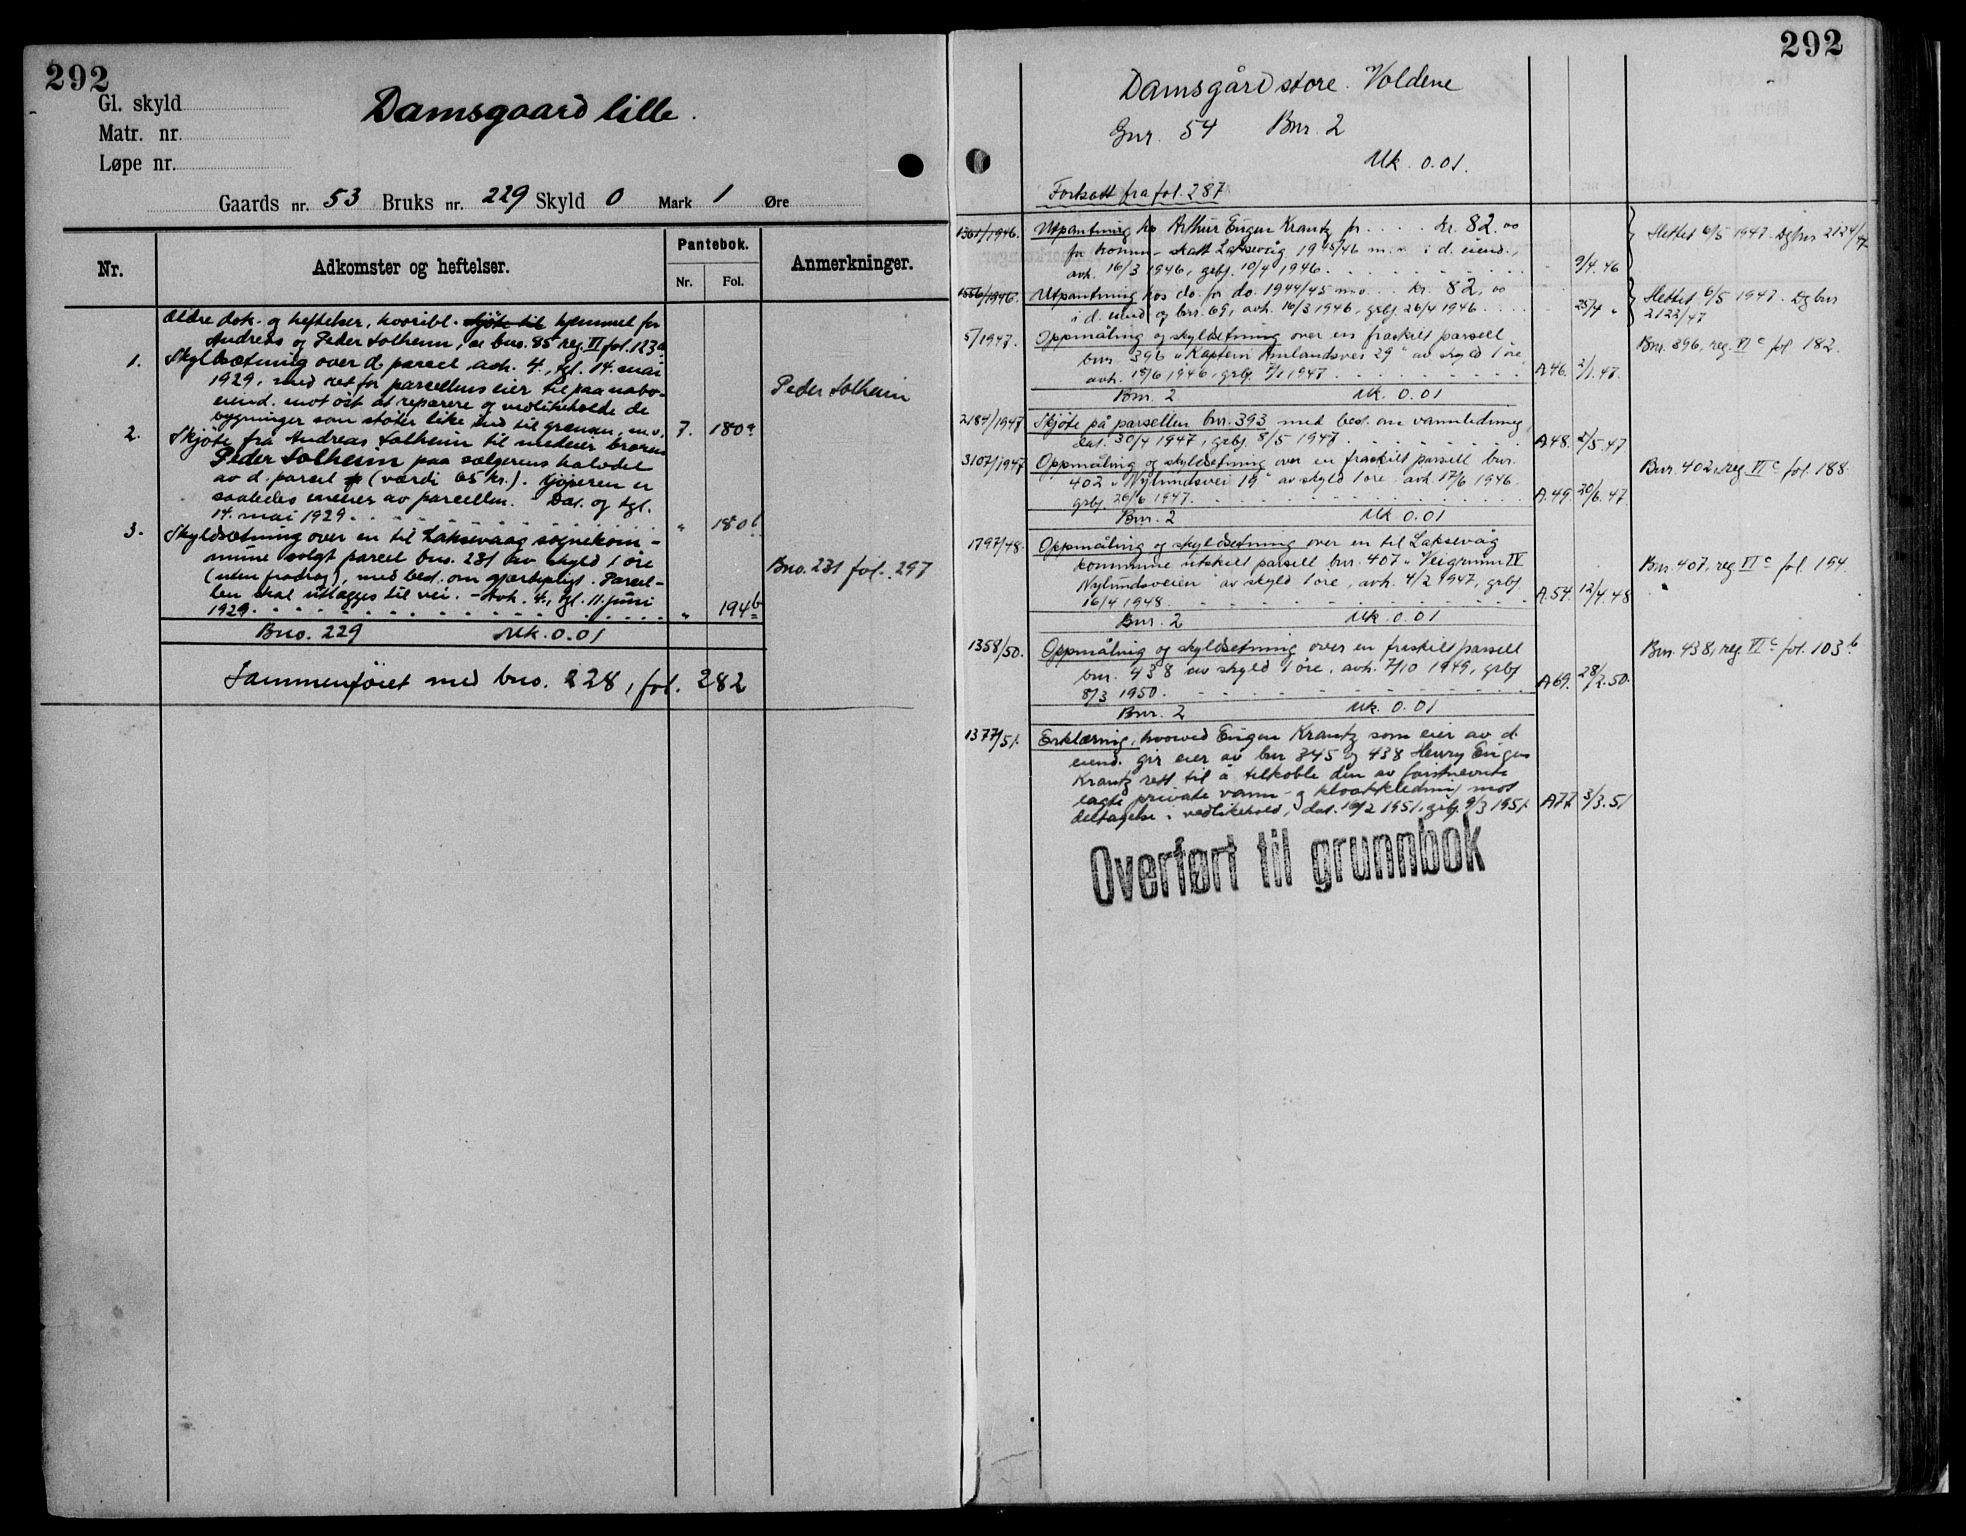 292
Gl. skyld
Matr. nr.
Løpe nr.
Damsgaard lille.
Gaards nr. 53 Bruks nr. 229 Skyld 0 Mark 1 Øre
Nr.
Adkomster og heftelser.
Pantebok.
Nr. Fol.
Anmerkninger.
Ældre dok. og heftelser, hvoribl. skjøte til hjemmel for
Andreas og Peder Solheim, se bno. 85 reg. II fol. 123
1. Skyldsætning over d. parcel, avh. 4., tgl. 14. mai
1929, med ret for parcellens eier til paa nabo-
eiend. mot øst at reparere og vedlikeholde de
bygninger som støter like ind til grænsen, m.v. 7. 180a
Peder Solheim
2. Skjøte fra Andreas Solheim til medeier broren
Peder Solheim paa sælgerens halvdel
av d. parcel (værdi 65 kr.). Kjøperen er
saaledes eneeier av parcellen. Dat. og tgl.
14. mai 1929 " 180b
3. Skyldsætning over en til Laksevaag sognekom-
mune solgt parcel bno. 231 av skyld 1 øre
(uten fradrag), med best. om gjærdepligt. Parcel-
len skal utlægges til vei. - Avh. 4., tgl. 11. juni
1929. " 194b
Bno. 231 fol. 297
Bno. 229 Mk. 0.01
Sammenføiet med bno. 228, fol. 282
292
Damsgård store. Voldene
Gnr. 54 Bnr. 2
Mk. 0.01.
Fortsatt fra fol. 287
1361/1946. Utpantning hos Arthur Eugen Krantz for kr. 82.00
for komm-skatt Laksevåg 1945/46 m.v. i d. eiend.,
avh. 16/3 1946, grbf. 10/4 1946. 9/4.46
Slettet 6/5 1947. Dgbnr 2124/47
1556/1946. Utpantning hos do. for do. 1944/45 m.v. kr. 82,00
i d. eiend og bnr. 69, avh. 16/3 1946, grbf. 26/4 1946. 25/4 "
Slettet 6/5 1947. Dgbnr
2123/47
5/1947. Oppmåling og skyldsetning over en fraskilt parsell
bnr. 396 "Kaptein Amlandsvei 29" av skyld 1 øre,
avh. 18/6 1946, grbf. 7/1 1947 A.46. 2/1.47.
Bnr. 396, reg. VI c fol 182.
Bnr. 2 Mk. 0.01
2184/1947 Skjøte på parsellen bnr. 393 med best. om vannledning,
dat. 30/4 1947, grbf. 8/5 1947 A.48. 2/5.47
3107/1947 Oppmåling og skyldsetning over en fraskilt parsell bnr.
402 "Nylundsvei 19" av skyld 1 øre, avh. 17/6 1946.
grbf. 26/6 1947. A.49. 20/6.47.
Bnr. 402, reg VI c fol. 188.
Bnr. 2 Mk 0.01
1797/48. Oppmåling og skyldsetning over en til Laksevåg
kommune utskilt parsell bnr. 407 "Veigrunn IV
Nylundsveien" av skyld 1 øre, avh. 4/2 1947, grbf
16/4 1948. A.54. 12/4.48
Bnr. 407, reg VI c fol. 194.
Bnr. 2 Mk. 0.01
1358/50. Oppmåling og skyldsetning over en fraskilt parsell
bnr. 438 av skyld 1 øre, avh. 7/10 1949, grbf
8/3 1950. A69. 28/2.50.
Bnr. 438, reg. VI c fol. 103 b.
Bnr. 2 Mk. 0.01
1377/51. Erklæring, hvorved Eugen Krantz som eier av d.
eiend. gir eier av bnr 345 og 438 Henry Eugen
Krantz rett til å tilkoble den av førstnevnte
lagte private vann- og kloakkledning mot
deltagelse i vedlikehold, dat. 16/2 1951, grbf. 9/3 1951. A77. 3/3.51
Overført til grunnbok